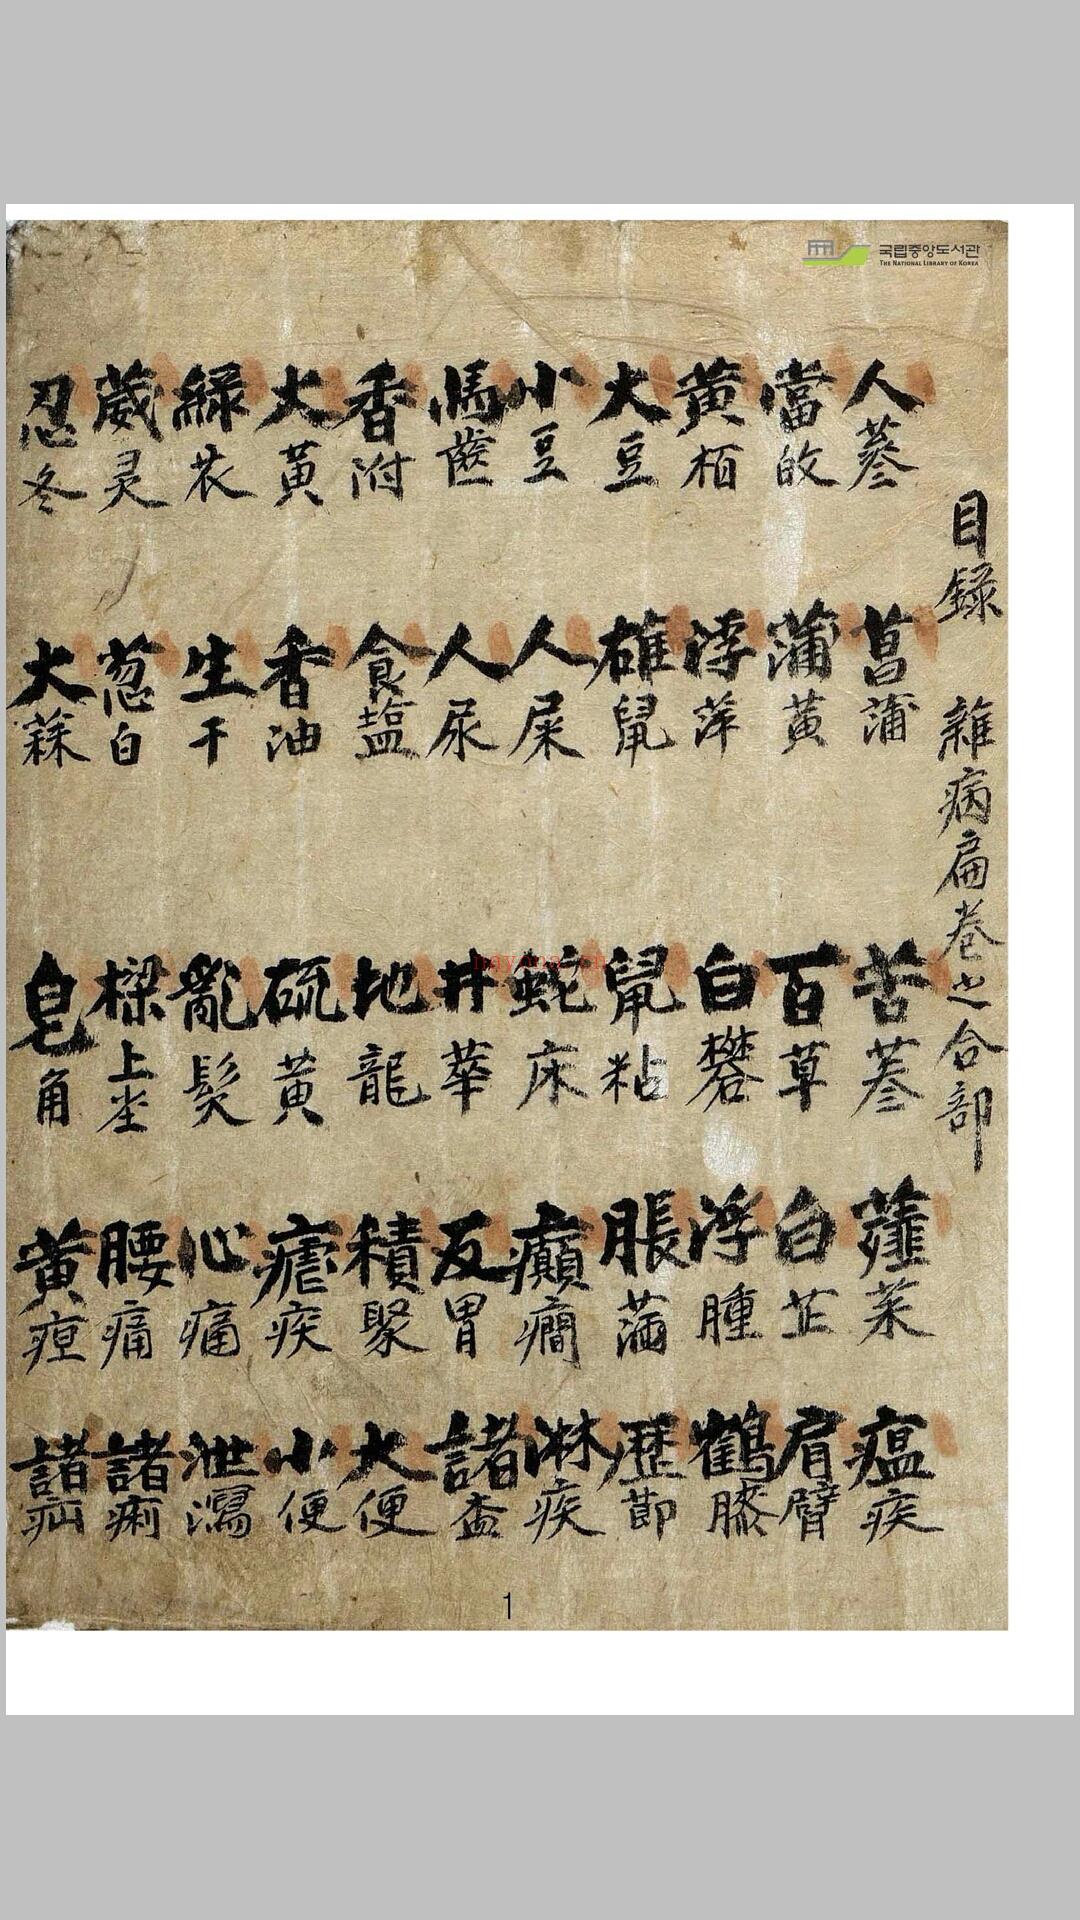 국립중앙도서관
THE NATIONAL LIBRARY OF KOREA
目錄 雜病扁卷之合部
人蔘 菖蒲 苦蔘 薤菜 瘟疾
當攸 蒲黃 百草 白芷 肩臂
黃栢 浮萍 白礬 浮腫 鶴膝
大豆 雄鼠 鼠粘 脹滿 歷節
小豆 人屎 蛇床 癲癎 淋疾
馬齒 人尿 井華 反胃 諸
香附 食塩 地龍 積聚 大便
大黃 香油 硫黃 瘧疾 小便
綠衣 生干 亂髮 心痛 泄瀉
葳灵 葱白 樑上坐 腰痛 諸痢
忍冬 大蒜 皂角 黃疸 諸疝
nqyaoa.cn
1